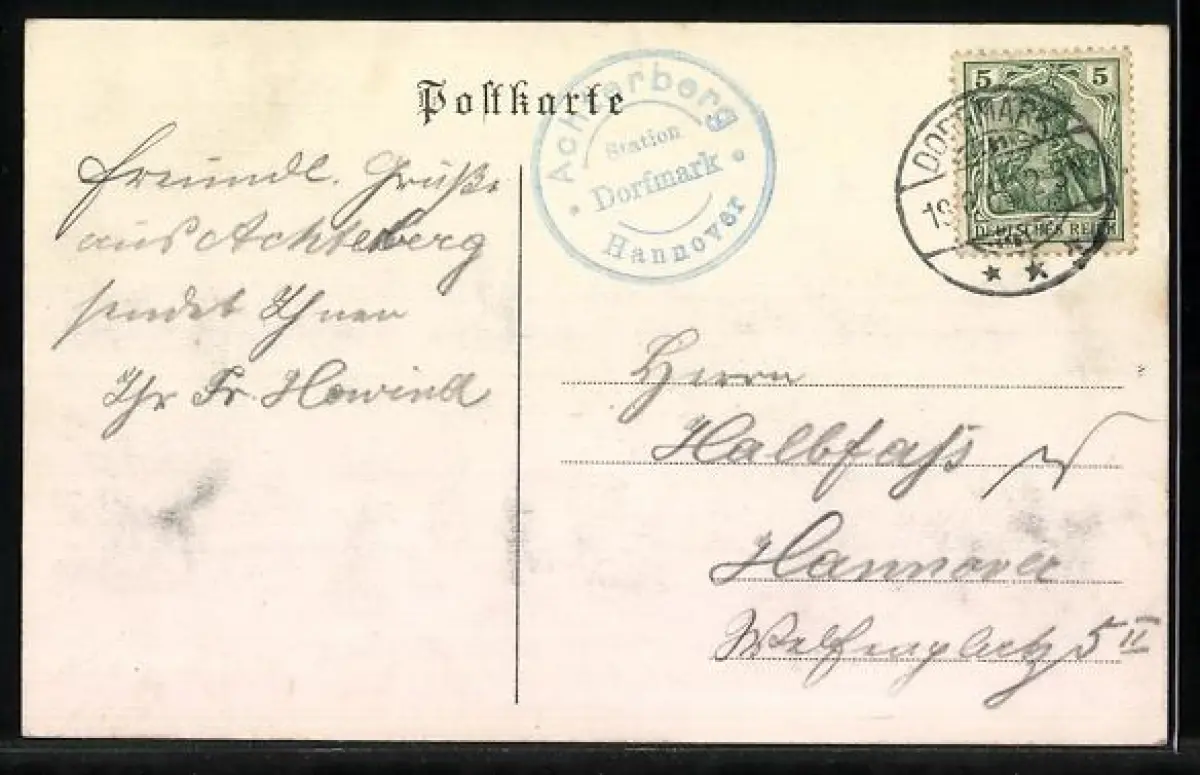 Postkarte
Achterberg
Station
Dorfmark
Hannover
5 5
DEUTSCHES REICH
DORFMARK
freundl. Grüße
aus Achterberg
sendet Ihnen
Ihr Fr.
Herrn
Halbfaß
Hannover
Welfenplatz 5 II